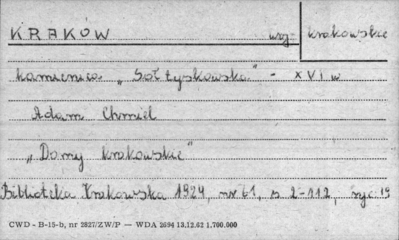 KRAKÓW woj. krakowskie
kamienica „Sołtyskowska" - XVI w
Adam Chmiel
„Domy krakowskie"
Biblioteka Krakowska 1924, nr 61, s 2-112, ryc 19
CWD - B-15-b, nr 2827/ZW/P — WDA 2694 13.12.62 1.700.000